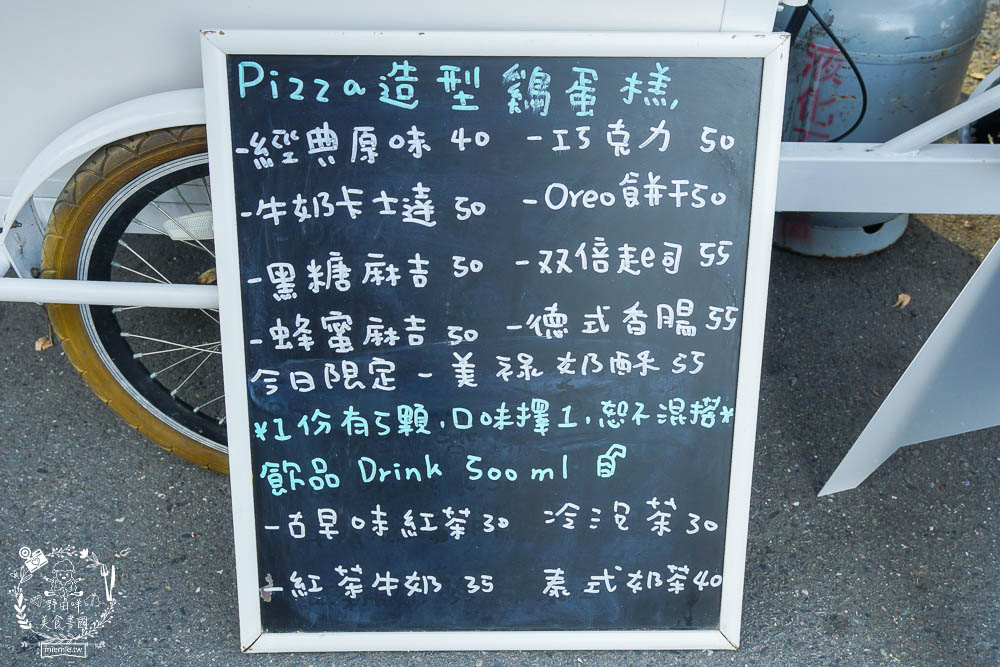 Pizza造型鷄蛋糕
-經典原味 40 -巧克力 50
-牛奶卡士達 50 -Oreo餅干50
-黑糖麻吉 50 -双倍起e司 55
-蜂蜜麻吉 50 -德式香腸 55
今日限定 - 美祿奶酥 55
*1份有5顆,口味擇1,恕不混搭*
飲品 Drink 500ml
-古早味紅茶30 冷泡茶30
-紅茶牛奶 35 泰式奶茶40
液化
美食樂園
miemie.tw